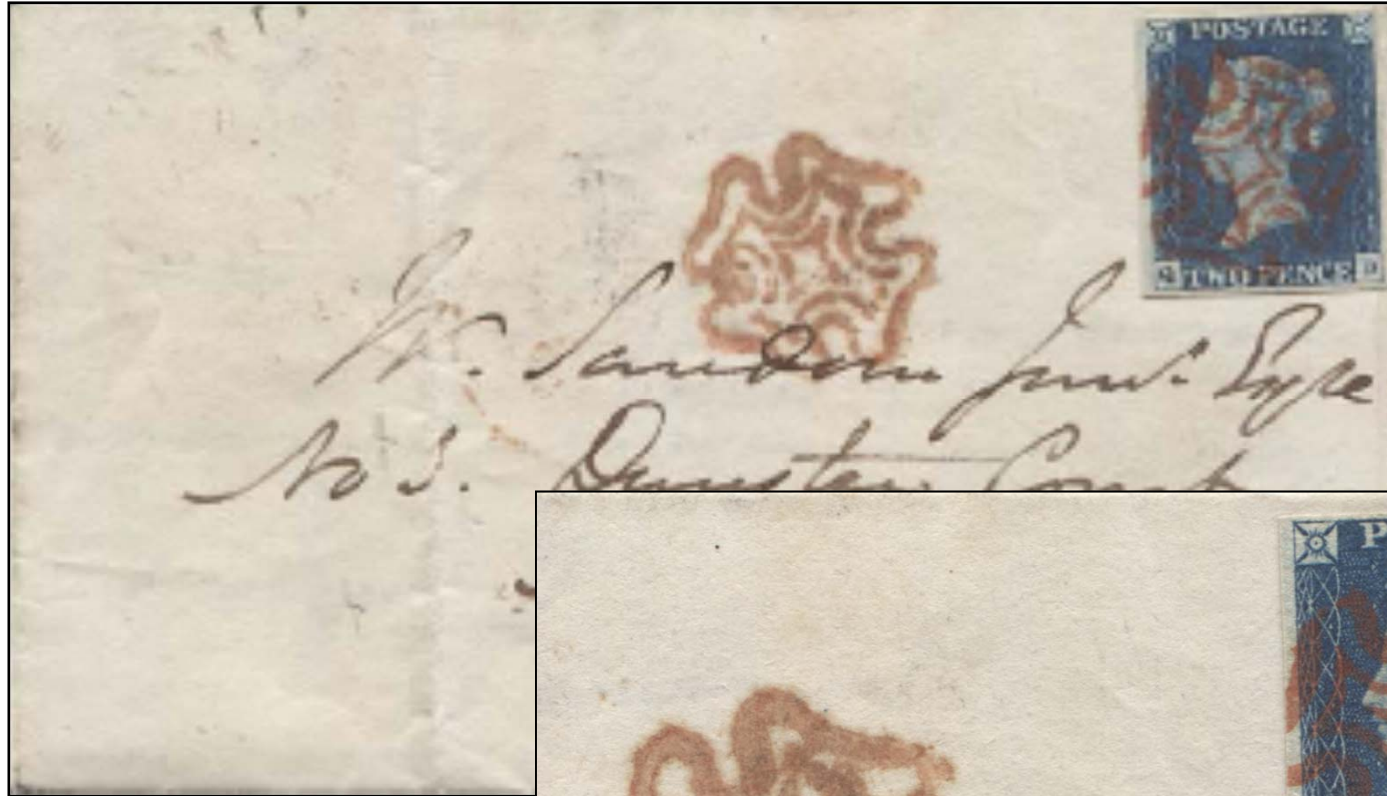 POSTAGE
S TWO PENCE D
Junr. Esqre
No 3. Dunster Court
P